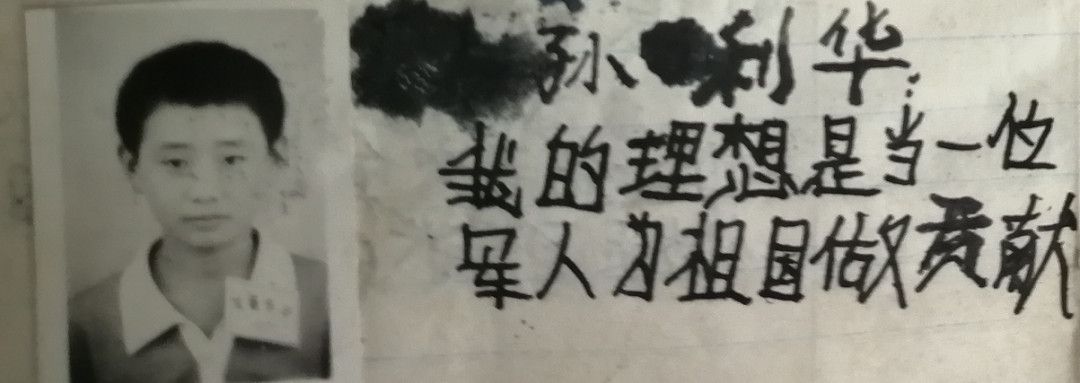 孙利华:
我的理想是当一位
军人为祖国做贡献